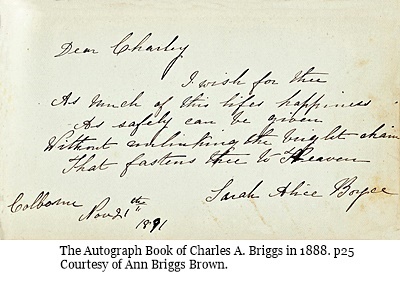 Dear Charley
I wish for thee
As much of this lifes happiness
As safely can be given
Without unlinking the bright chain
That fastens thee to Heaven
Sarah Alice Boyce
Colborne Nov 21th 1891
The Autograph Book of Charles A. Briggs in 1888. p25
Courtesy of Ann Briggs Brown.